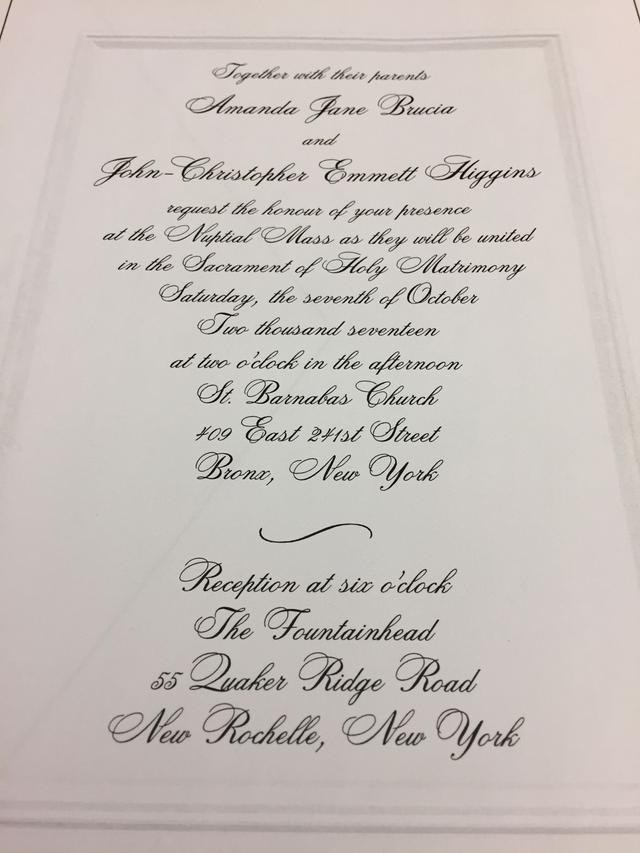 Together with their parents
Amanda Jane Brucia
and
John-Christopher Emmett Higgins
request the honour of your presence
at the Nuptial Mass as they will be united
in the Sacrament of Holy Matrimony
Saturday, the seventh of October
Two thousand seventeen
at two o'clock in the afternoon
St. Barnabas Church
409 East 241st Street
Bronx, New York
Reception at six o'clock
The Fountainhead
55 Quaker Ridge Road
New Rochelle, New York